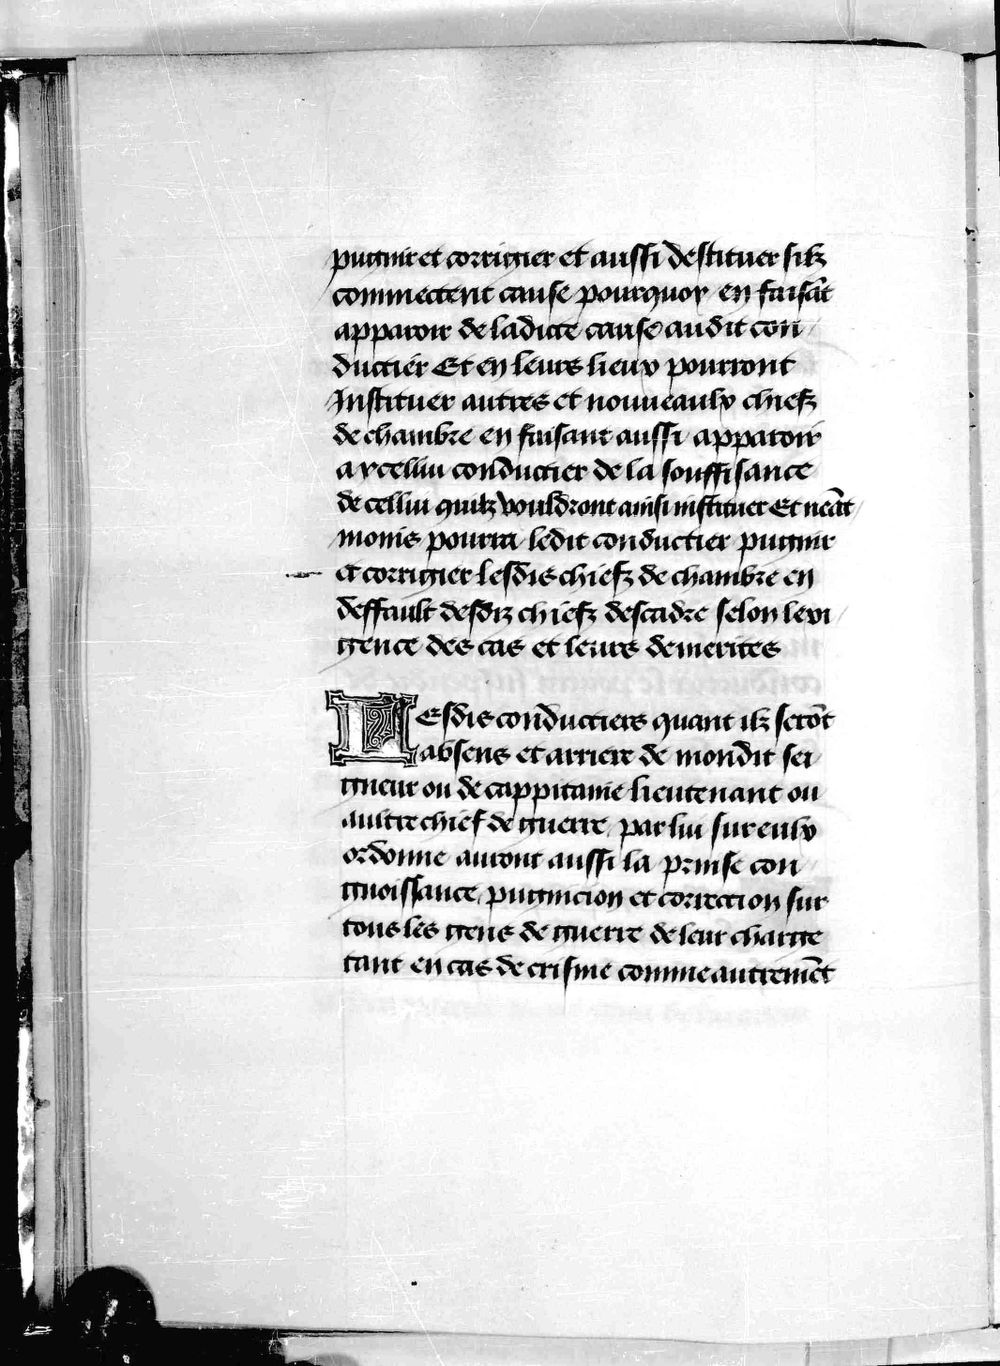 pugnir et corrigier et aussi destituer silz
commectent cause pourquoy en faisāt
apparoir de ladicte cause audit con
ductier Et en leurs lieux pourront
Instituer autres et nouueaulx chiefz
de chambre en faisant aussi apparoir
a ycellui conductier de la souffisance
de cellui quilz vouldront ainsi instituer Et neāt
moins pourra ledit conductier pugnir
et corrigier lesdis chiefz de chambre en
deffault desdiz chiefz descadre selon lexi
gence des cas et leurs demerites
Lesdis conductiers quant ilz serōt
absens et arriere de mondit sei
gneur ou de cappitaine lieutenant ou
aultre chief de guerre par lui sur eulx
ordonne auront aussi la prinse con
gnoissance pugnicion et correction sur
tous les gens de guerre de leur charge
tant en cas de crisme comme autremēt